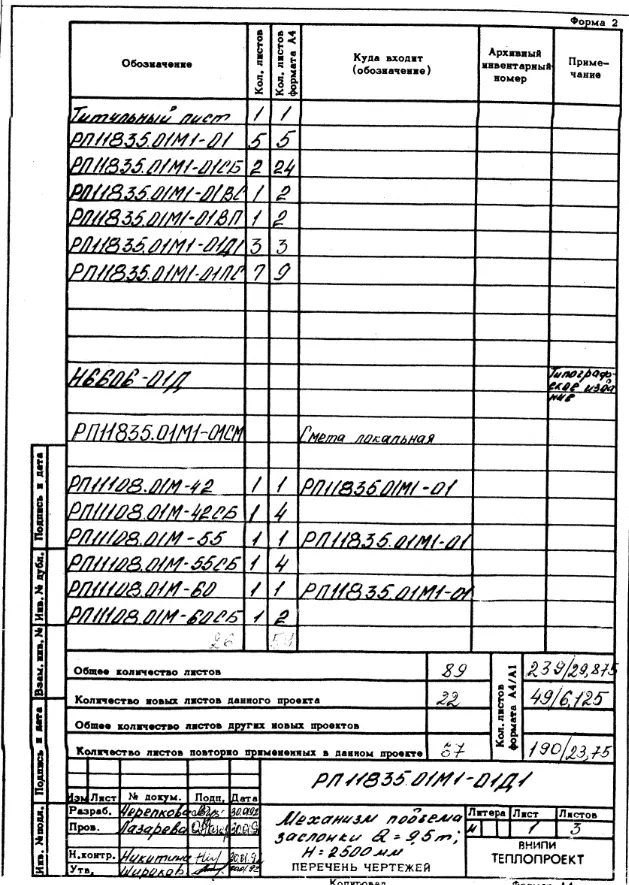 Форма 2
Обозначение
Кол. листов
Кол. листов формата А4
Куда входит (обозначение)
Архивный инвентарный номер
Приме-чание
Титульный лист 1 1
РП11835.01М1-01 5 5
РП11835.01М1-01СБ 2 24
РП11835.01М1-01ВС 1 2
РП11835.01М1-01ВП 1 2
РП11835.01М1-01Д1 3 3
РП11835.01М1-01ПС 7 9
Н6606-01Д Типограф-
ское изда
ние
РП11835.01М1-01СМ Смета локальная
РП11108.01М-42 1 1 РП11835.01М1-01
РП11108.01М-42СБ 1 4
РП11108.01М-55 1 1 РП11835.01М1-01
РП11108.01М-55СБ 1 4
РП11108.01М-60 1 1 РП11835.01М1-01
РП11108.01М-60СБ 1 2
26
Общее количество листов 89
Количество новых листов данного проекта 22
Общее количество листов других новых проектов
Количество листов повторно примененных в данном проекте
Кол. листов формата А4/А1
239/29,875
49/6,125
190/23,75
РП11835.01М1-01Д1
Изм Лист № докум. Подп. Дата
Разраб. Черепкова
Пров. Лазарева
Н.контр. Никитина
Утв. Широков
Механизм подъема
заслонки Q = 9,5 т;
Н = 2500 мм
ПЕРЕЧЕНЬ ЧЕРТЕЖЕЙ
Литера Лист Листов
И 1 3
ВНИПИ
ТЕПЛОПРОЕКТ
Копировал
Формат А4
Инв. № подл.
Подпись и дата
Взам. инв. №
Инв. № дубл.
Подпись и дата